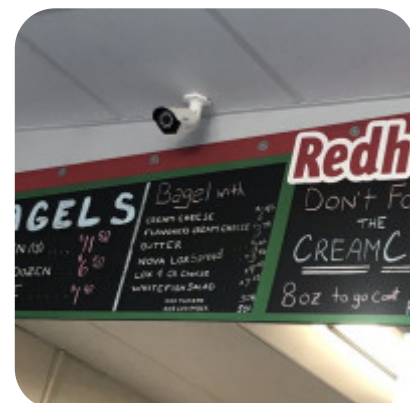 AGELS
EN (13) .... 11 50
DOZEN 6 50
Bagel with
CREAM CHEESE
FLAVORED CREAM CHEESE
BUTTER
NOVA LOX Spread
LOX & CR CHEESE
WHITEFISH SALAD
Redh
DON'T FO
THE
CREAM C
8oz to go cont